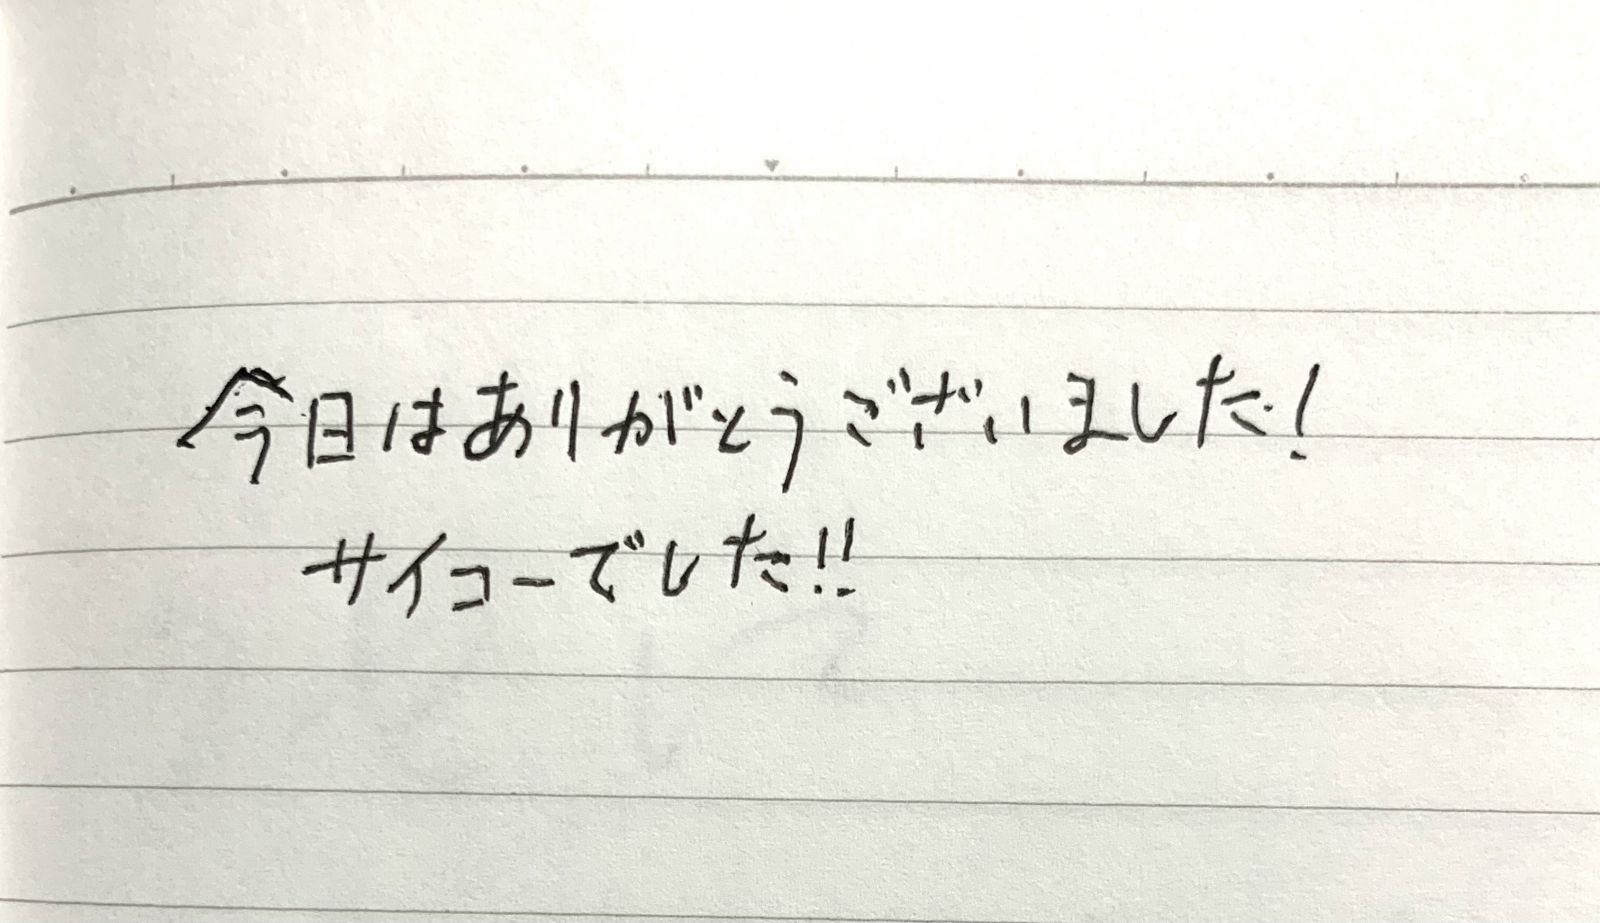 今日はありがとうございました!
サイコーでした!!